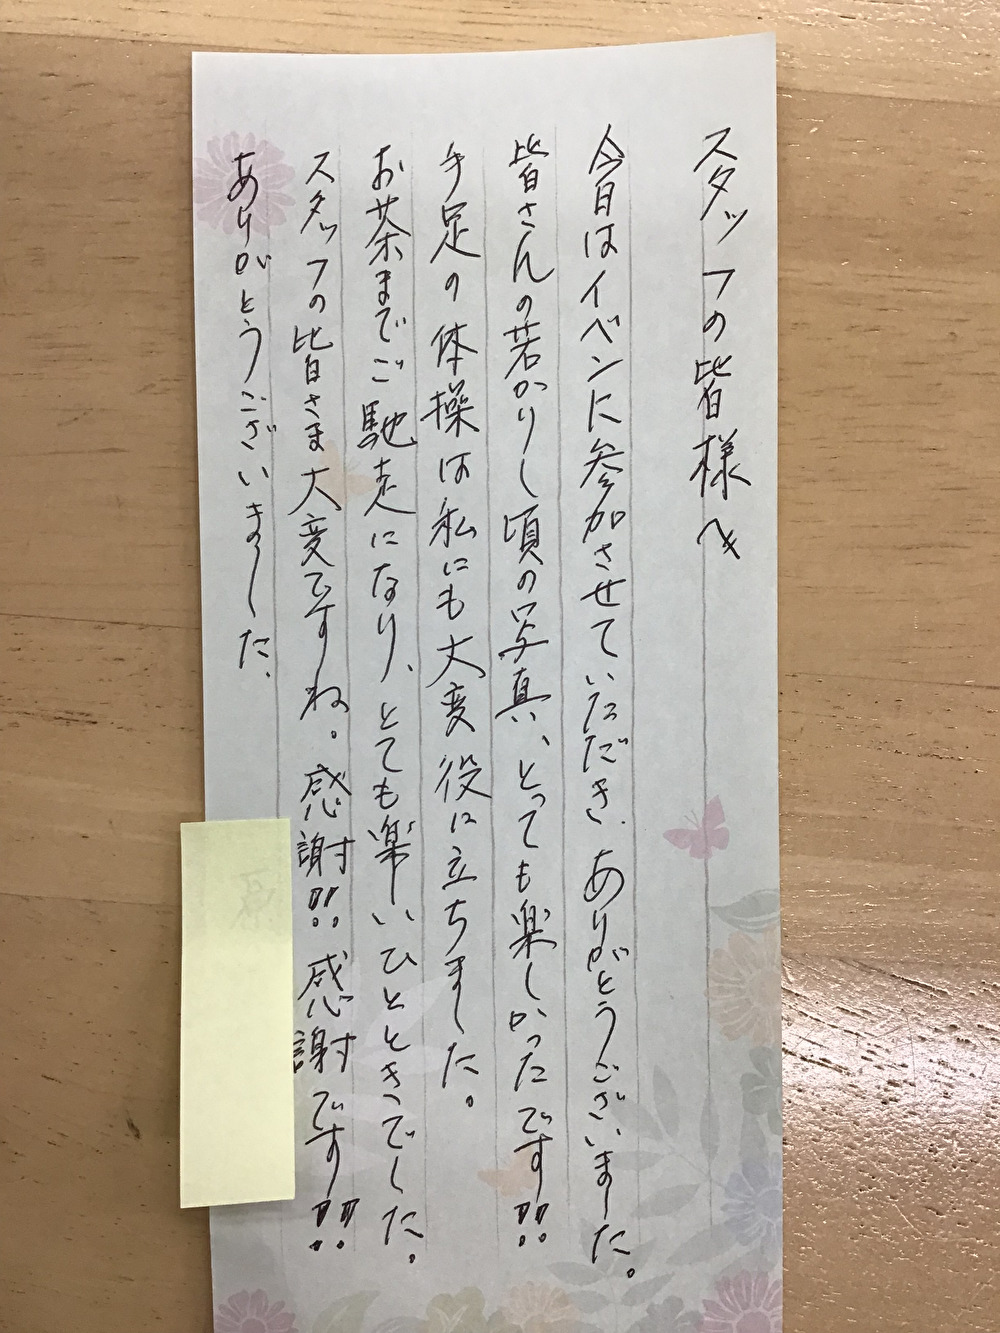 スタッフの皆様へ
今日はイベントに参加させていただき、ありがとうございました。
皆さんの若かりし頃の写真、とっても楽しかったです!!
手足の体操は私にも大変役に立ちました。
お茶までご馳走になり、とても楽しいひとときでした。
スタッフの皆さま大変ですね。感謝!!感謝です!!
ありがとうございました。